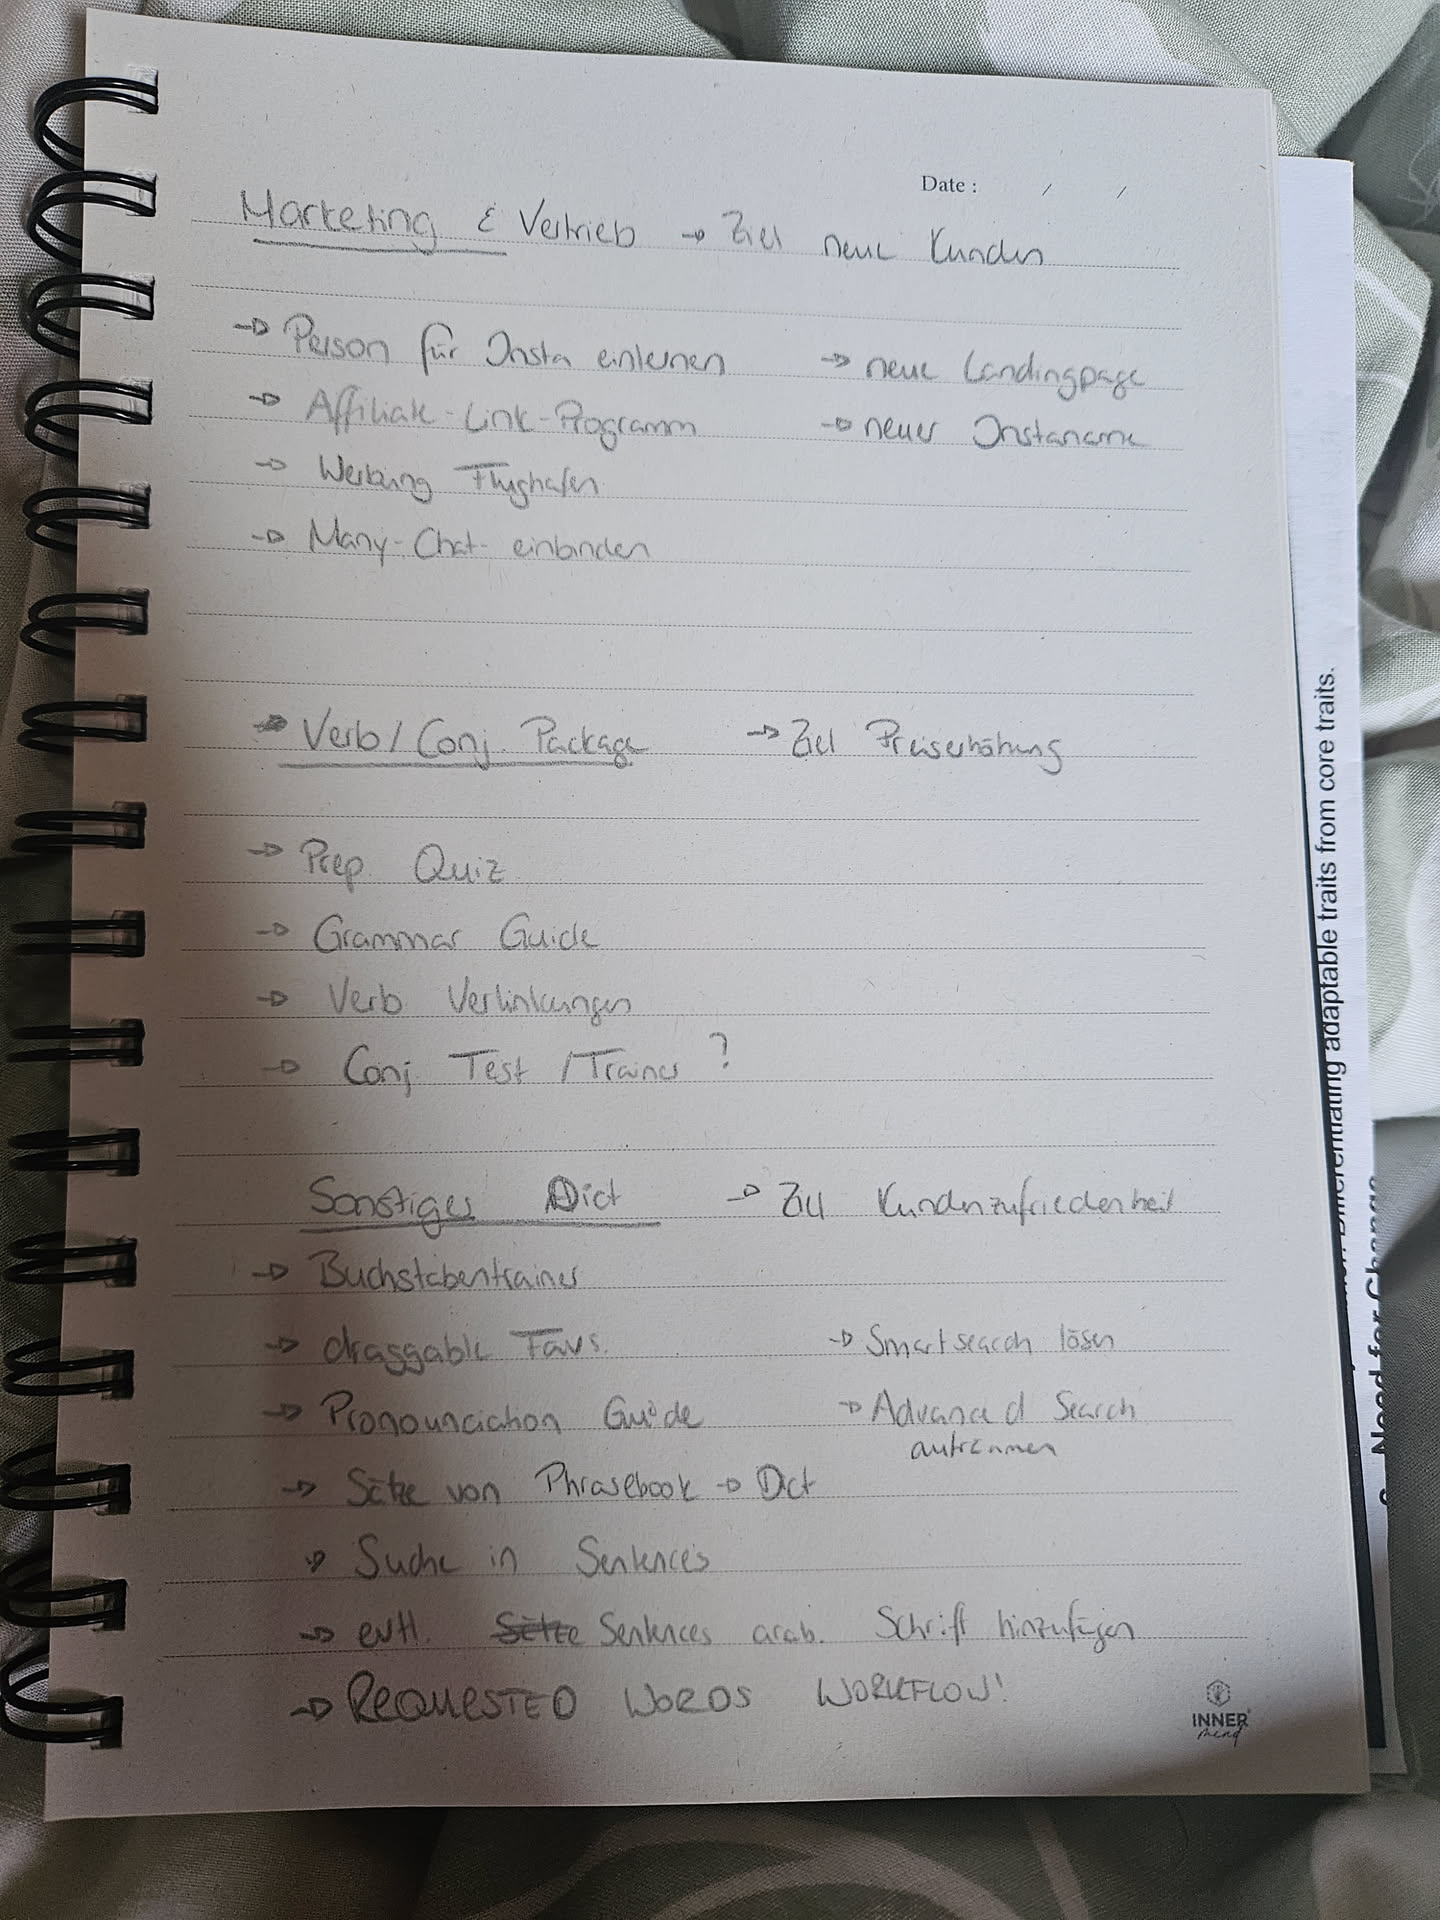 Date : / /
Marketing & Vertrieb → Ziel neue Kunden
→ Person für Insta einlernen → neue Landingpage
→ Affiliate-Link-Programm → neuer Instaname
→ Werbung Flughafen
→ Many-Chat- einbinden
→ Verb/Conj. Package → Ziel Preiserhöhung
→ Prep. Quiz
→ Grammar Guide
→ Verb Verlinkungen
→ Conj. Test / Trainer ?
Sonstiges Dict → Ziel Kundenzufriedenheit
→ Buchstabentrainer
→ draggable Favs. → Smartsearch lösen
→ Pronounciation Guide → Advanced Search
aufräumen
→ Sätze von Phrasebook → Dict
→ Suche in Sentences
→ evtl. Sätze Sentences arab. Schrift hinzufügen
→ REQUESTED WORDS WORKFLOW!
INNER
mind
Differentiating adaptable traits from core traits.
Need for Change